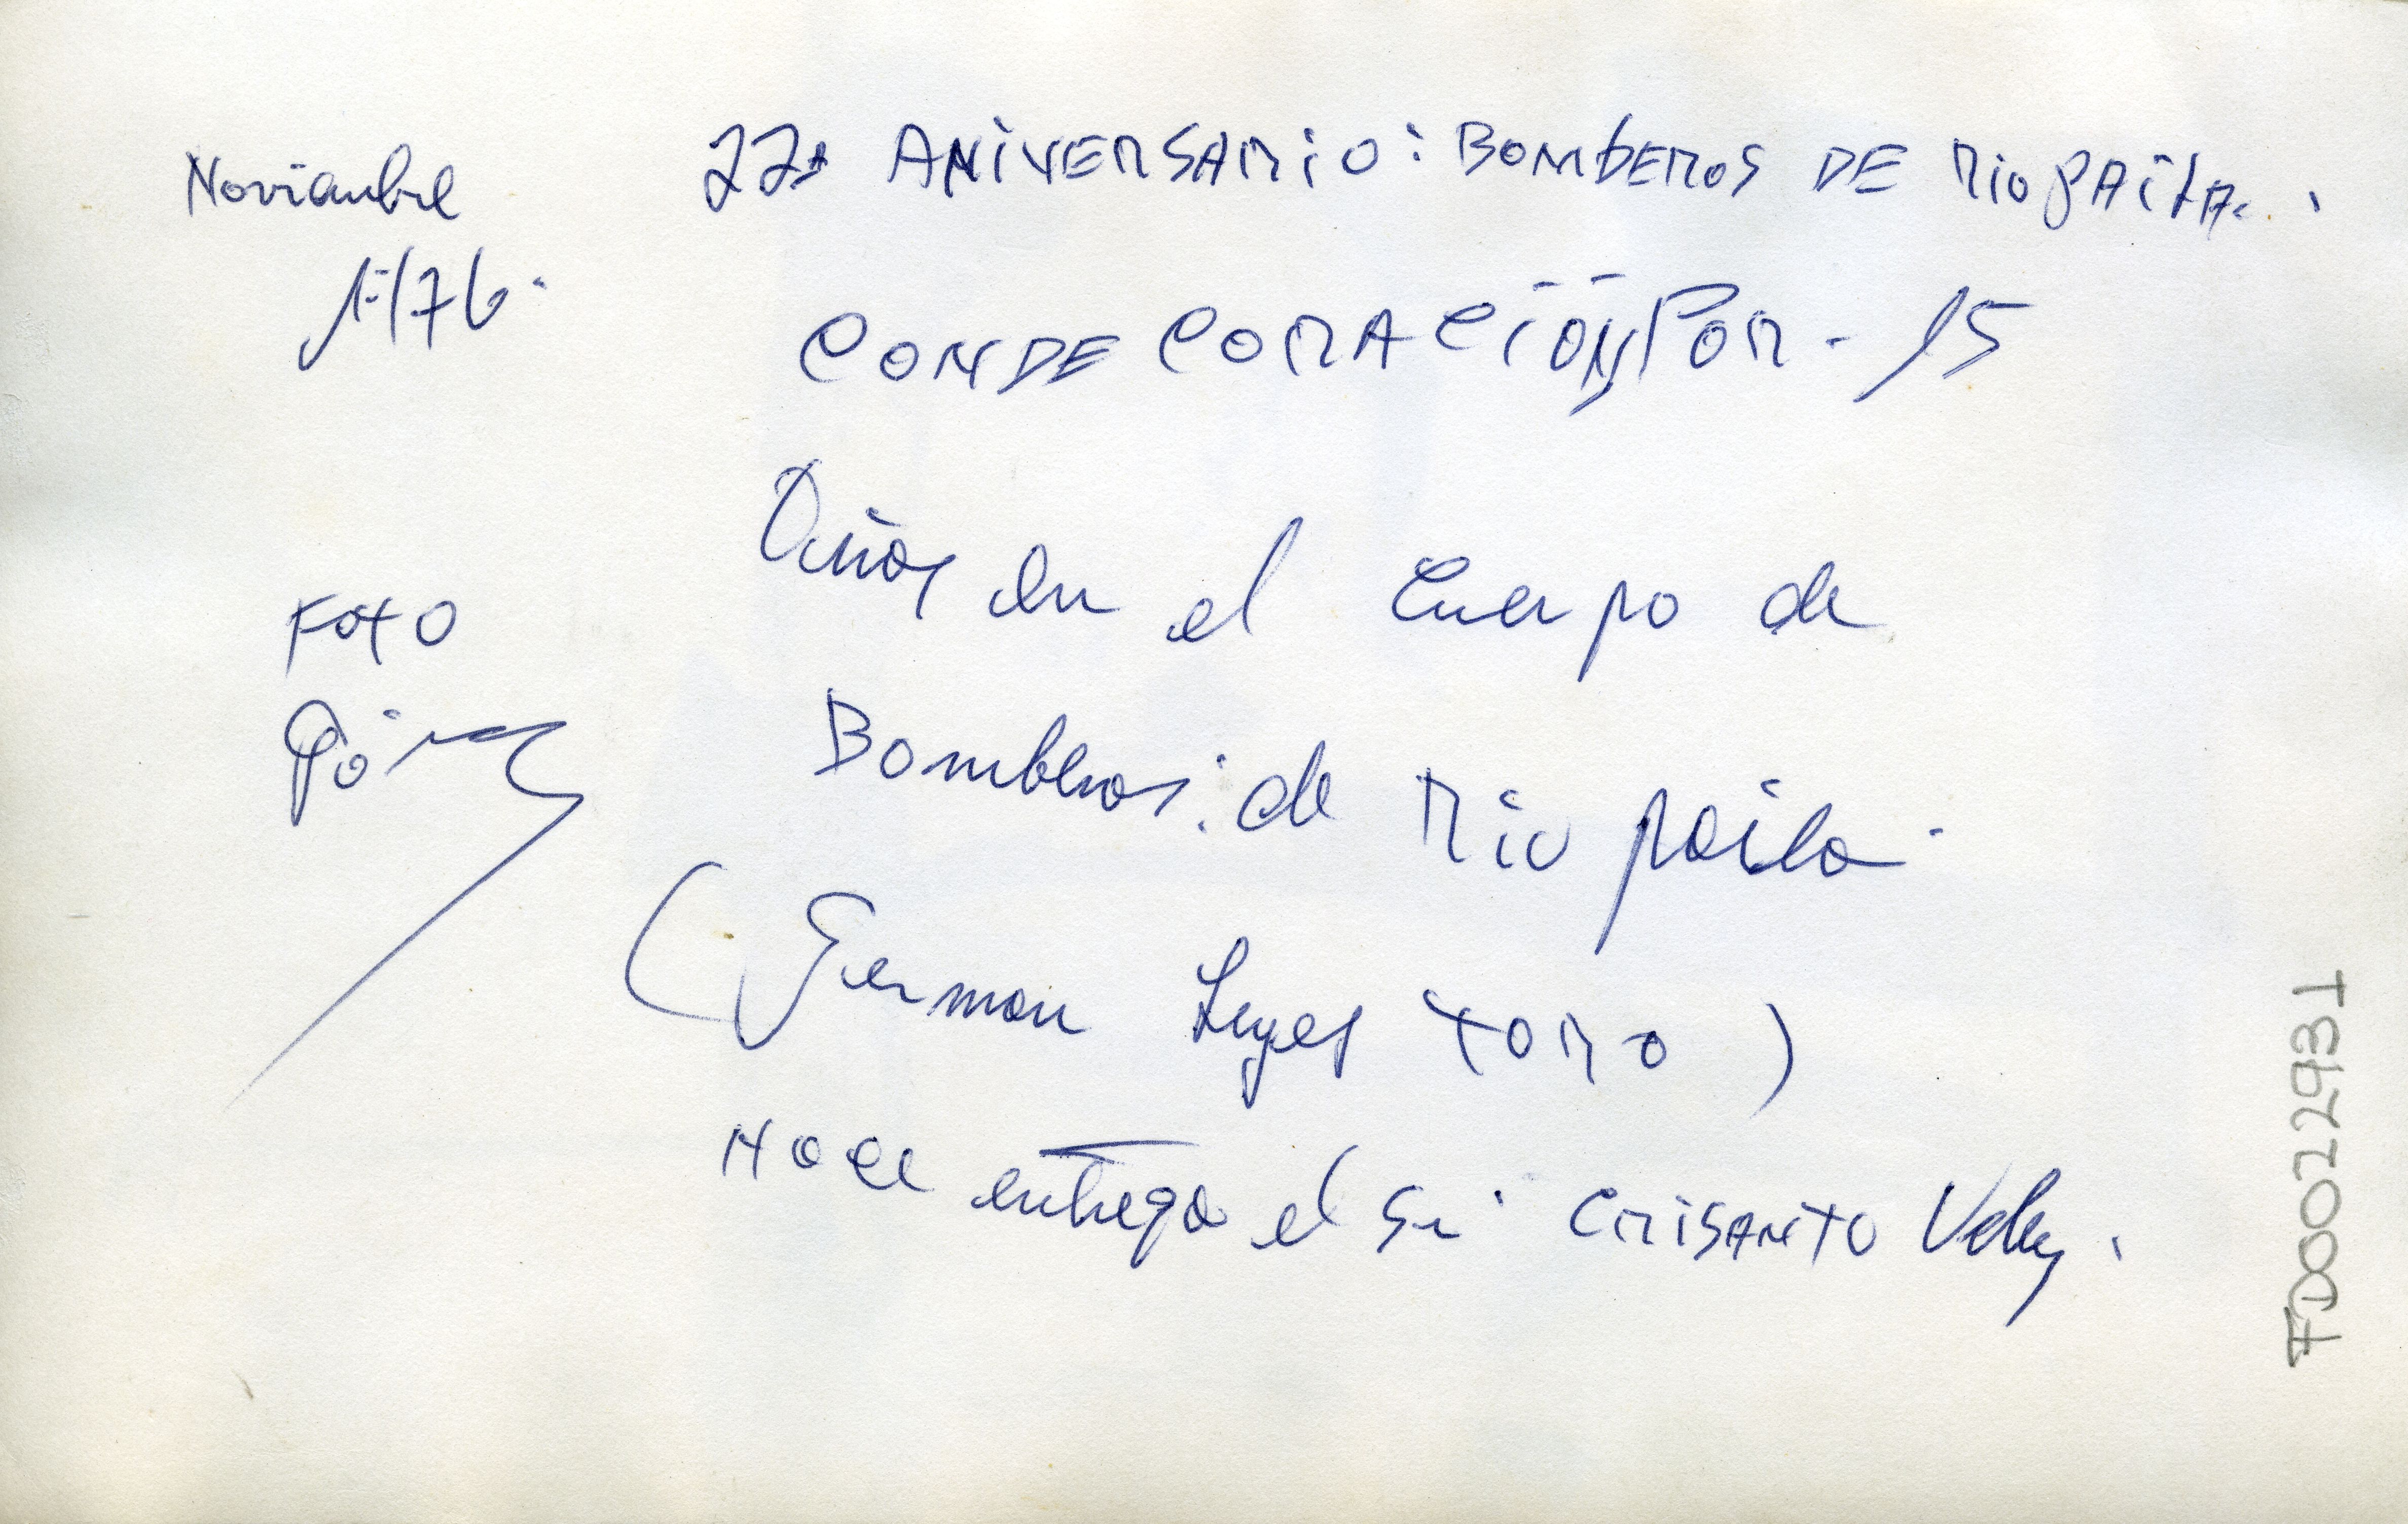 Noviembre
1-/76.
22a ANIVERSARIO: BOMBEROS DE RiOPAiLA.
CONDECORACIÓN POR - 15
Años en el Cuerpo de
Bomberos. de Riopaila.
(German Reyes TORO)
Hace entrega el Sr. CRISANTO
FOTO
FD0022931